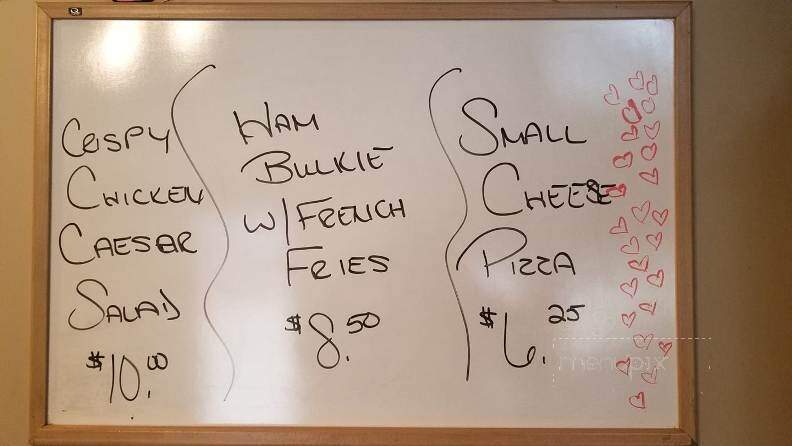 CRISPY
CHICKEN
CAESAR
SALAD
$10.00
HAM
BULKIE
W/ FRENCH
FRIES
$8.50
SMALL
CHEESE
PIZZA
$6.25
menupix